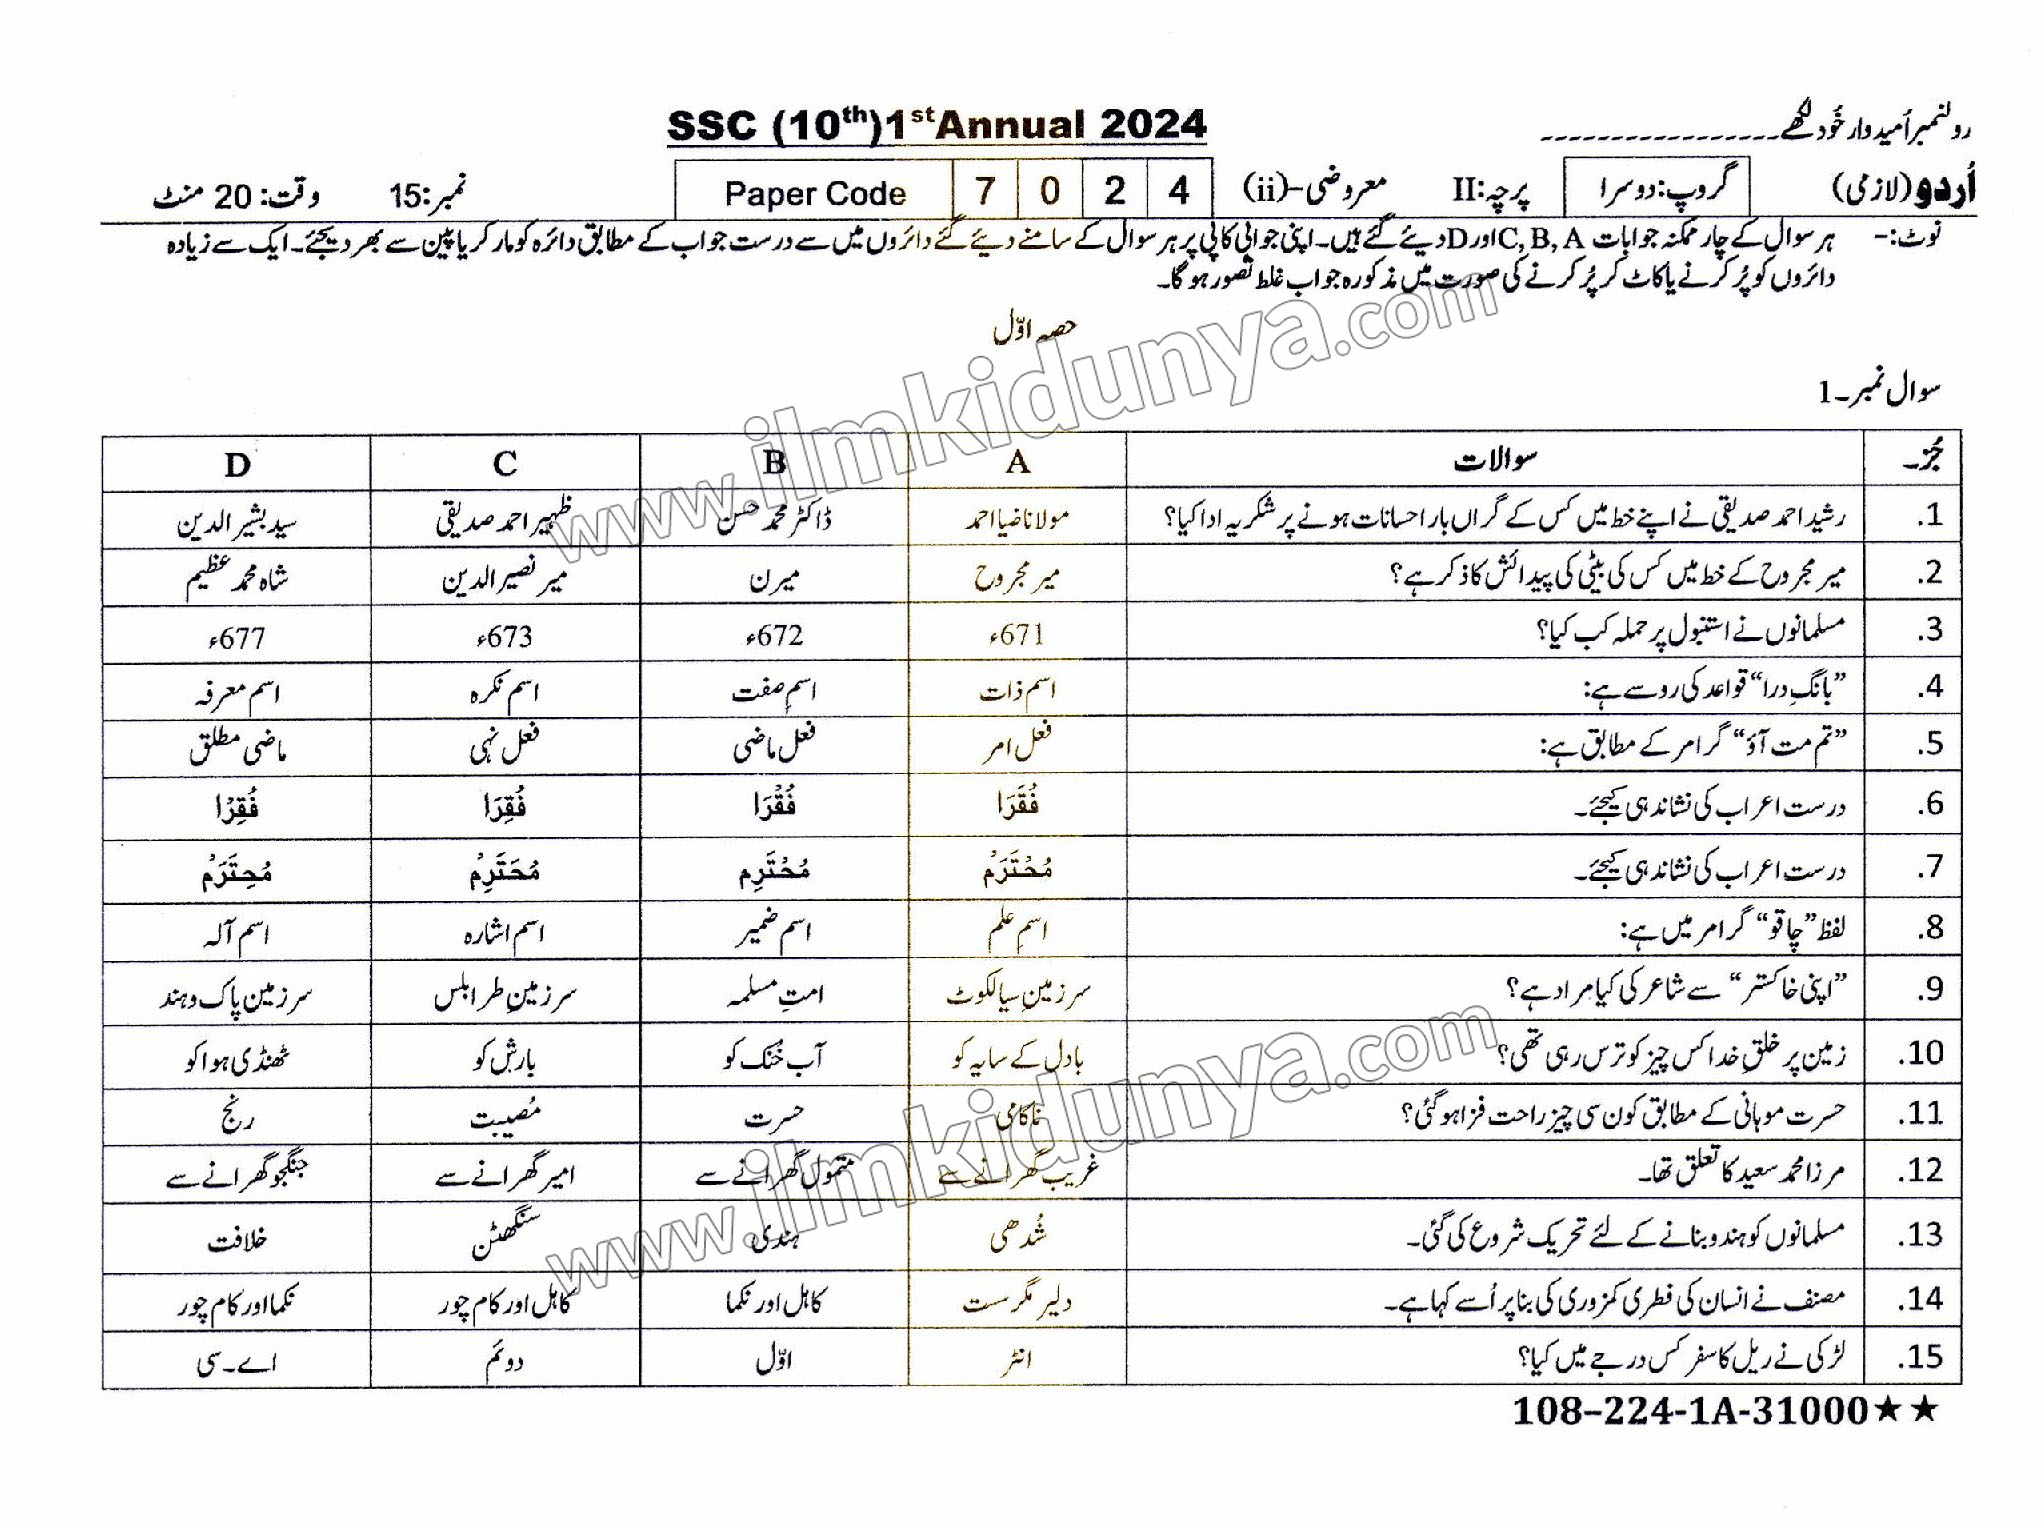 رولنمبر اُمیدوار خود لکھے۔
SSC (10th)1stAnnual 2024
اُردو (لازمی) گروپ: دوسرا پرچہ: II معروضی-(ii) Paper Code 7 0 2 4 نمبر: 15 وقت: 20 منٹ
نوٹ:- ہر سوال کے چار ممکنہ جوابات C, B, A اور D دیئے گئے ہیں۔ اپنی جوابی کاپی پر ہر سوال کے سامنے دیئے گئے دائروں میں سے درست جواب کے مطابق دائرہ کو مارکر یا پین سے بھر دیجئے۔ ایک سے زیادہ
دائروں کو پُر کرنے یا کاٹ کر پُر کرنے کی صورت میں مذکورہ جواب غلط تصور ہو گا۔
حصہ اوّل
سوال نمبر۔1
جُز۔ سوالات A B C D
1. رشید احمد صدیقی نے اپنے خط میں کس کے گراں بار احسانات ہونے پر شکریہ ادا کیا؟ مولانا ضیا احمد ڈاکٹر محمد حسن ظہیر احمد صدیقی سید بشیر الدین
2. میر مجروح کے خط میں کس کی بیٹی کی پیدائش کا ذکر ہے؟ میر مجروح میرن میر نصیر الدین شاہ محمد عظیم
3. مسلمانوں نے استنبول پر حملہ کب کیا؟ 671ء 672ء 673ء 677ء
4. ”بانگِ درا“ قواعد کی رو سے ہے: اسم ذات اسمِ صفت اسم نکرہ اسم معرفہ
5. ”تم مت آؤ“ گرامر کے مطابق ہے: فعل امر فعل ماضی فعل نہی ماضی مطلق
6. درست اعراب کی نشاندہی کیجئے۔ فُقَرَا فُقْرَا فُقِرَا فُقِرْا
7. درست اعراب کی نشاندہی کیجئے۔ مُحْتَرَمْ مُحْتَرِم مُحَتَرِمْ مُحِتَرَمْ
8. لفظ ”چاقو“ گرامر میں ہے: اسمِ علم اسم ضمیر اسم اشارہ اسم آلہ
9. ”اپنی خاکستر“ سے شاعر کی کیا مراد ہے؟ سرزمینِ سیالکوٹ امتِ مسلمہ سرزمینِ طرابلس سرزمین پاک و ہند
10. زمین پر خلقِ خدا کس چیز کو ترس رہی تھی؟ بادل کے سایہ کو آب خُنک کو بارش کو ٹھنڈی ہوا کو
11. حسرت موہانی کے مطابق کون سی چیز راحت فزا ہو گئی؟ ناکامی حسرت مُصیبت رنج
12. مرزا محمد سعید کا تعلق تھا۔ غریب گھرانے سے متمول گھرانے سے امیر گھرانے سے جنگجو گھرانے سے
13. مسلمانوں کو ہندو بنانے کے لئے تحریک شروع کی گئی۔ شُدھی ہندی سنگھٹن خلافت
14. مصنف نے انسان کی فطری کمزوری کی بنا پر اُسے کہا ہے۔ دلیر مگر ست کاہل اور نکما کاہل اور کام چور نکما اور کام چور
15. لڑکی نے ریل کا سفر کس درجے میں کیا؟ انٹر اوّل دوئم اے۔سی
108-224-1A-31000★★
www.ilmkidunya.com
www.ilmkidunya.com